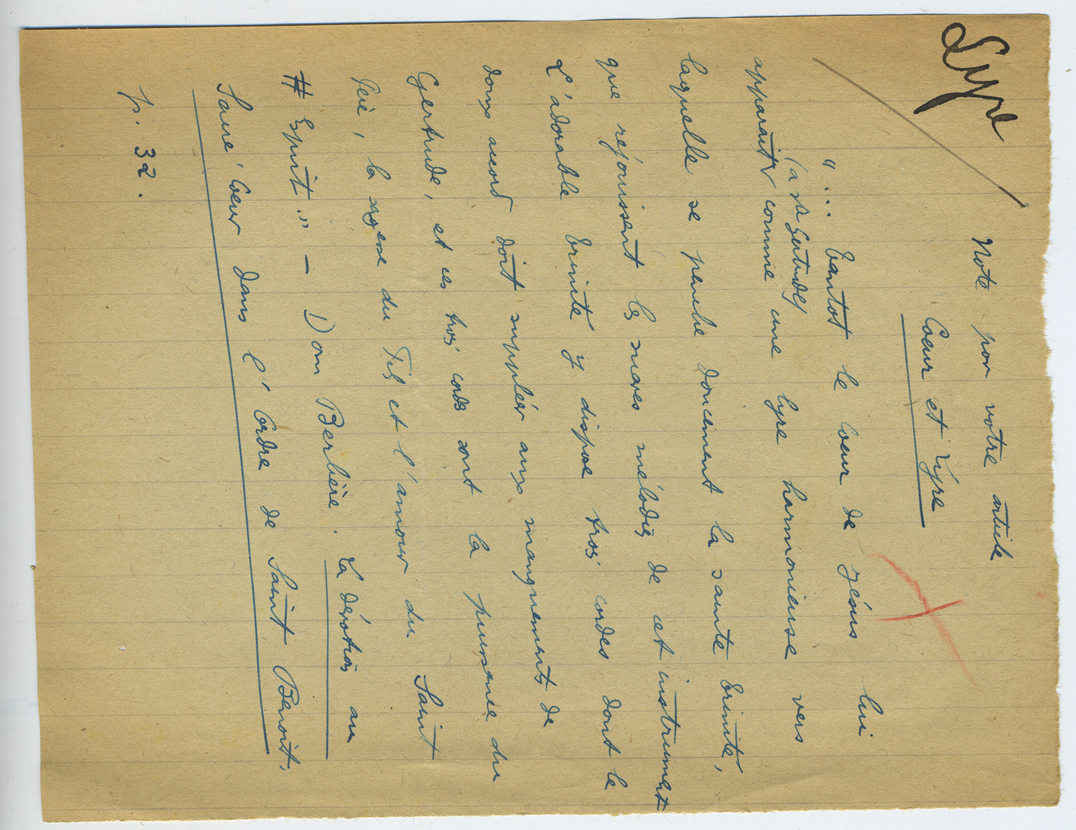 Lyre
Note pour votre article
Cœur et Lyre
"... Tantôt le Cœur de Jésus lui
(à Ste Gertrude)
apparaît comme une lyre harmonieuse vers
laquelle se penche doucement la sainte Trinité,
que réjouissent les suaves mélodies de cet instrument
L'adorable Trinité y dispose trois cordes dont le
doux accord doit suppléer aux manquements de
Gertrude, et ces trois cordes sont la puissance du
Père, la sagesse du Fils et l'amour du Saint
Esprit" — Dom Berlière. La dévotion au
Sacré Cœur dans l'Ordre de Saint Benoît,
p. 32.